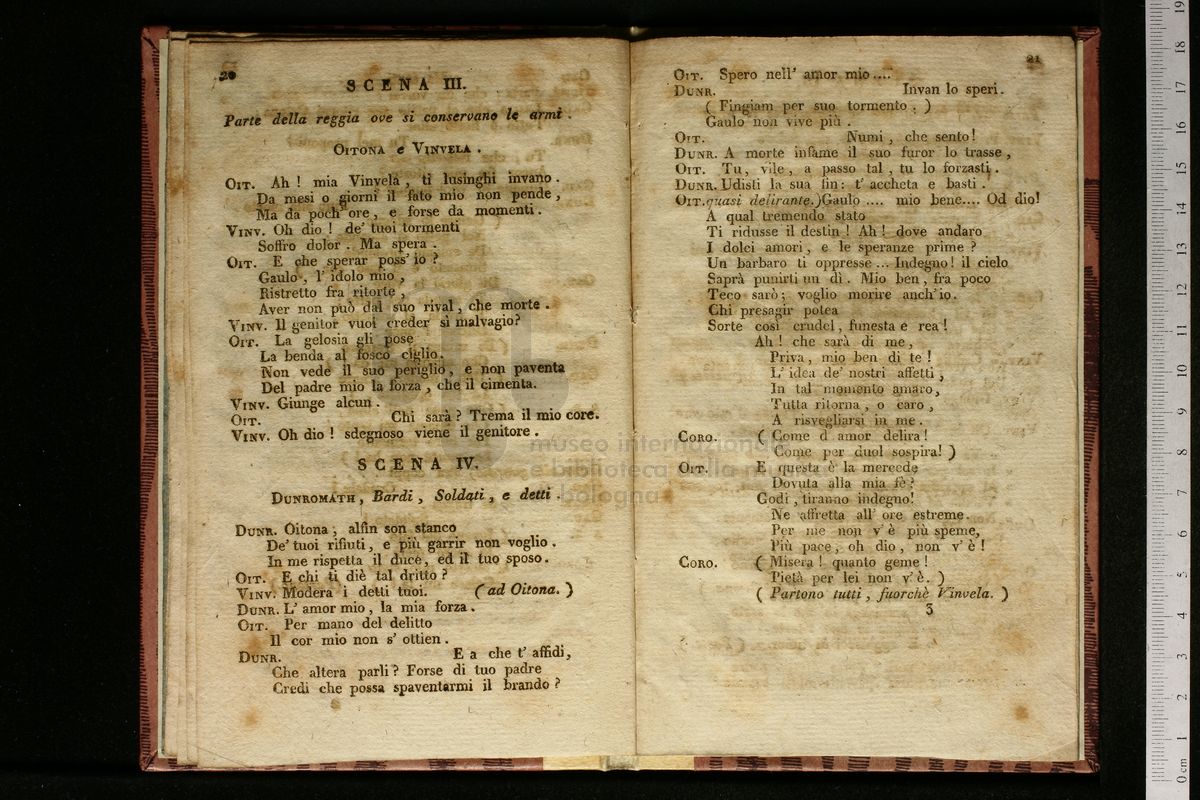 20
SCENA III.
Parte della reggia ove si conservano le armi .
OITONA e VINVELA .
OIT. Ah ! mia Vinvela , ti lusinghi invano .
Da mesi o giorni il fato mio non pende ,
Ma da poch' ore , e forse da momenti .
VINV. Oh dio ! de' tuoi tormenti
Soffro dolor . Ma spera .
OIT. E che sperar poss' io ?
Gaulo , l' idolo mio ,
Ristretto fra ritorte ,
Aver non può dal suo rival , che morte .
VINV. Il genitor vuoi creder sì malvagio?
OIT. La gelosia gli pose
La benda al fosco ciglio.
Non vede il suo periglio , e non paventa
Del padre mio la forza , che il cimenta.
VINV. Giunge alcun .
OIT. Chi sarà ? Trema il mio core.
VINV. Oh dio ! sdegnoso viene il genitore .
SCENA IV.
DUNROMATH , Bardi , Soldati , e detti .
DUNR. Oitona , alfin son stanco
De' tuoi rifiuti , e più garrir non voglio .
In me rispetta il duce , ed il tuo sposo .
OIT. E chi ti diè tal dritto ?
VINV. Modera i detti tuoi. ( ad Oitona. )
DUNR. L' amor mio , la mia forza .
OIT. Per mano del delitto
Il cor mio non s' ottien .
DUNR. E a che t' affidi ,
Che altera parli ? Forse di tuo padre
Credi che possa spaventarmi il brando ?
21
OIT. Spero nell' amor mio ....
DUNR. Invan lo speri .
( Fingiam per suo tormento . )
Gaulo non vive più .
OIT. Numi , che sento!
DUNR. A morte infame il suo furor lo trasse ,
OIT. Tu , vile , a passo tal , tu lo forzasti .
DUNR. Udisti la sua fin : t' accheta e basti .
OIT. quasi delirante.) Gaulo .... mio bene.... Od dio!
A qual tremendo stato
Ti ridusse il destin ! Ah ! dove andaro
I dolci amori , e le speranze prime ?
Un barbaro ti oppresse ... Indegno! il cielo
Saprà punirti un dì . Mio ben , fra poco
Teco sarò ; voglio morire anch' io .
Chi presagir potea
Sorte così crudel , funesta e rea !
Ah ! che sarà di me ,
Priva , mio ben di te !
L' idea de' nostri affetti ,
In tal momento amaro ,
Tutta ritorna , o caro ,
A risvegliarsi in me .
CORO. ( Come d' amor delira !
Come per duol sospira! )
OIT. E questa è la mercede
Dovuta alla mia fè ?
Godi , tiranno indegno!
Ne affretta all' ore estreme.
Per me non v' è più speme,
Più pace , oh dio , non v' è !
CORO. ( Misera ! quanto geme !
Pietà per lei non v' è . )
( Partono tutti , fuorchè Vinvela. )
3
museo internazionale
e biblioteca della musica
bologna
0 cm 1 2 3 4 5 6 7 8 9 10 11 12 13 14 15 16 17 18 19